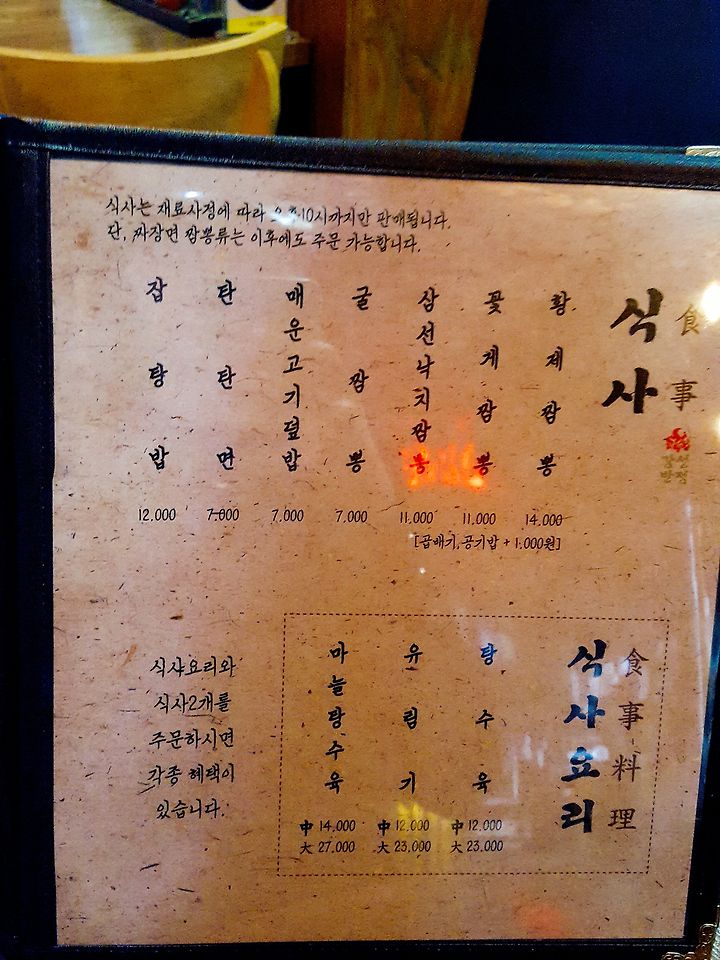 식사는 재료사정에 따라 오후10시까지만 판매됩니다.
단, 짜장면 짬뽕류는 이후에도 주문 가능합니다.
식사 食事
황제짬뽕 14.000
꽃게짬뽕 11.000
삼선낙치짬뽕 11.000
굴짬뽕 7.000
매운고기덮밥 7.000
탄탄면 7.000
잡탕밥 12.000
[곱배기,공기밥 + 1.000원]
식사요리 食事料理
탕수육 中 12.000 大 23.000
유림기 中 12.000 大 23.000
마늘탕수육 中 14.000 大 27.000
식사요리와
식사2개를
주문하시면
각종 혜택이
있습니다.